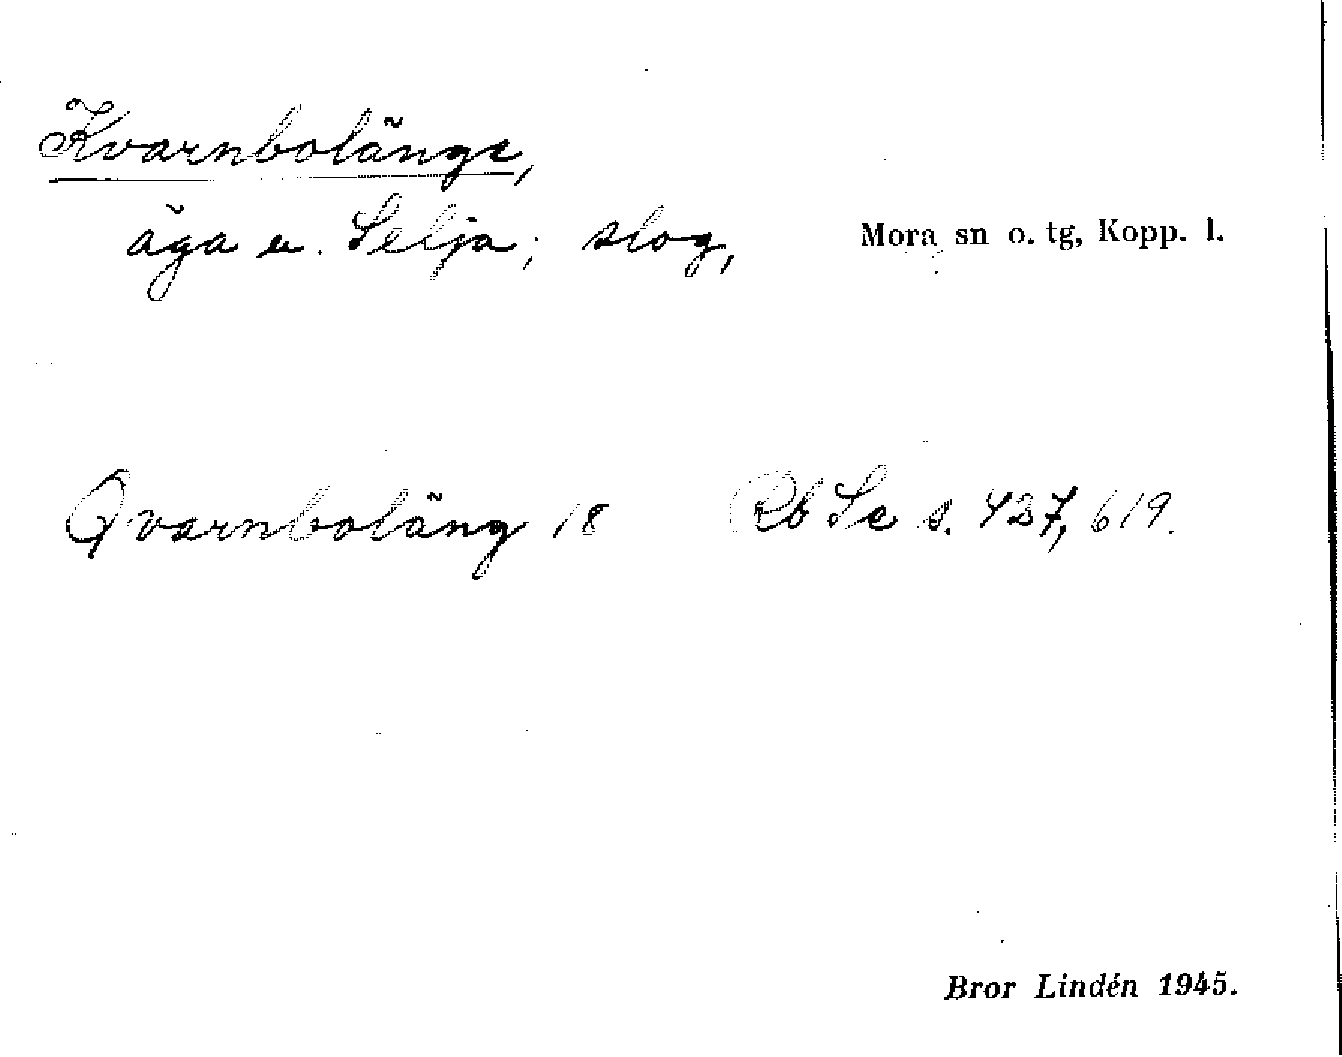 Kvarnbolänge,
äga u. Selja; slog, Mora sn o. tg, Kopp. l.
Qvarnboläng 18 Rb Se s. 427, 619.
Bror Lindén 1945.